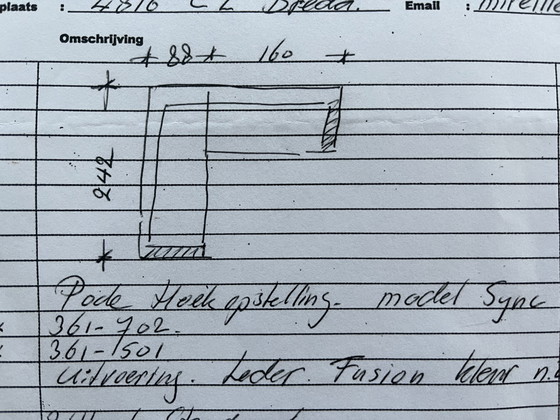 plaats : 4816 CL Breda. Email :
Omschrijving
88 160
242
Pode Hoekopstelling. model Sync
361-702.
361-1501
uitvoering. Leder. Fusion kleur n.